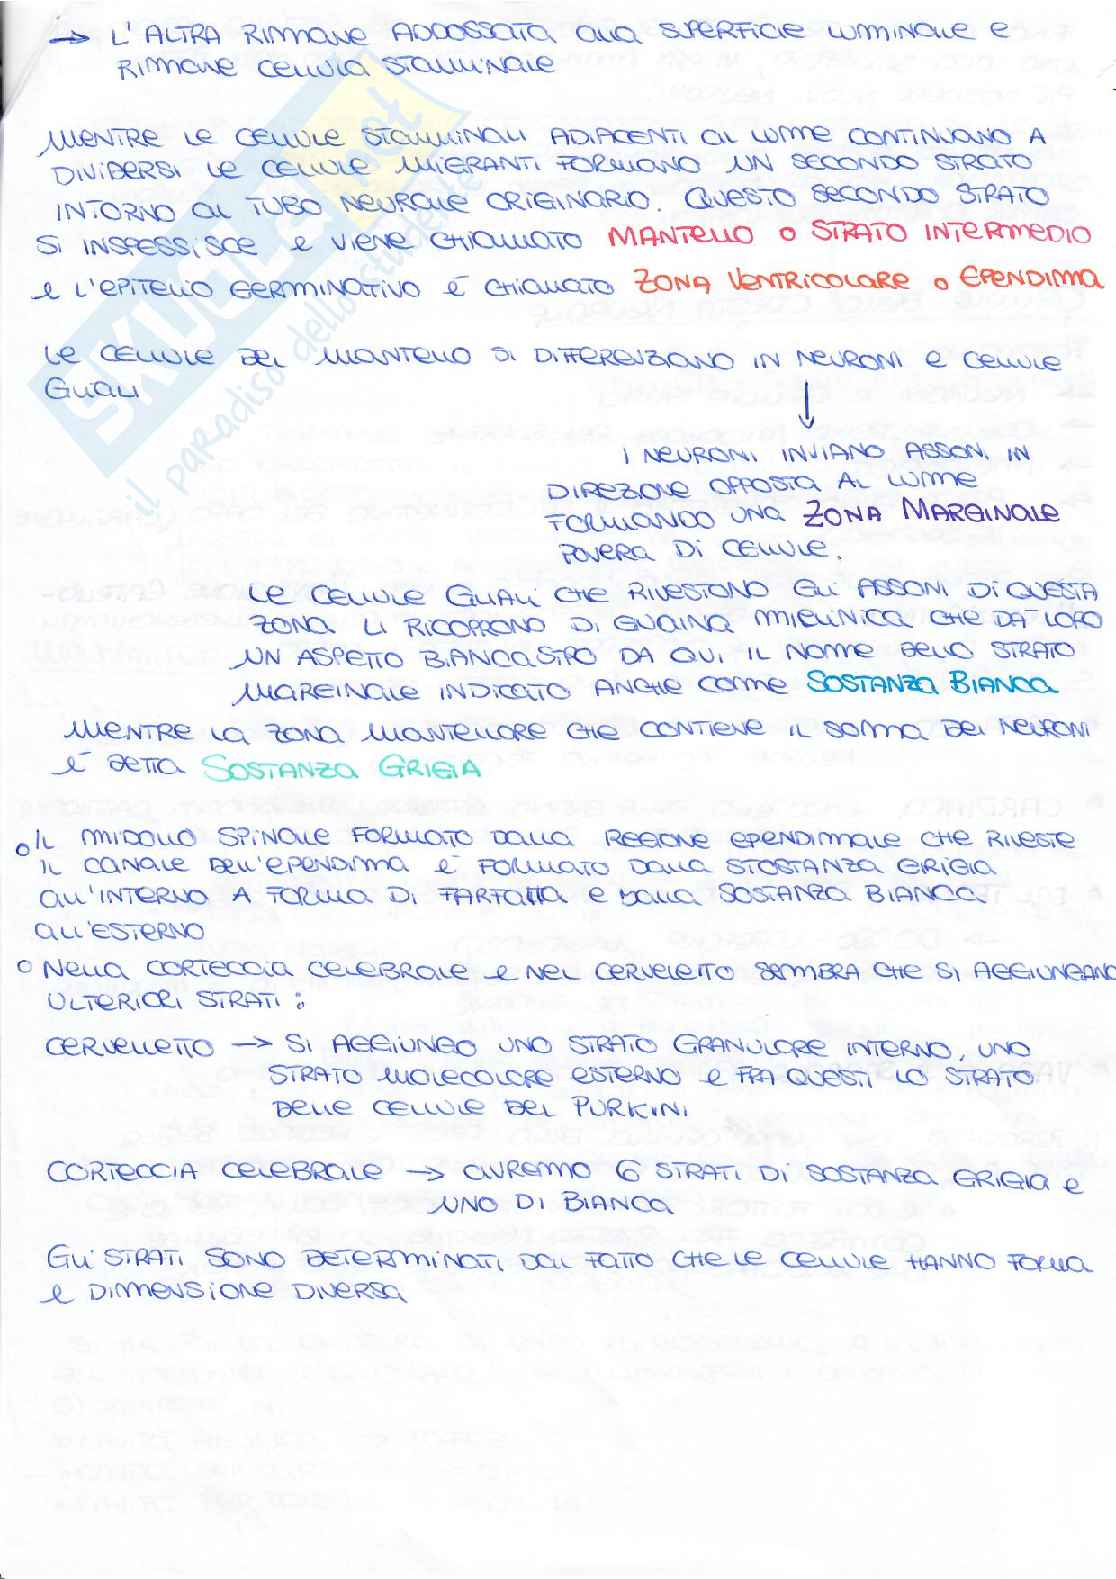 → L'ALTRA RIMANE ADDOSSATA ALLA SUPERFICIE LUMINALE E
RIMANE CELLULA STAMINALE
MENTRE LE CELLULE STAMINALI ADIACENTI AL LUME CONTINUANO A
DIVIDERSI LE CELLULE MIGRANTI FORMANO UN SECONDO STRATO
INTORNO AL TUBO NEURALE ORIGINARIO. QUESTO SECONDO STRATO
SI INSPESSISCE E VIENE CHIAMATO MANTELLO O STRATO INTERMEDIO
E L'EPITELIO GERMINATIVO È CHIAMATO ZONA VENTRICOLARE O EPENDIMA
LE CELLULE DEL MANTELLO SI DIFFERENZIANO IN NEURONI E CELLULE
GLIALI
↓
I NEURONI INVIANO ASSONI IN
DIREZIONE OPPOSTA AL LUME
FORMANDO UNA ZONA MARGINALE
POVERA DI CELLULE.
LE CELLULE GLIALI CHE RIVESTONO GLI ASSONI DI QUESTA
ZONA LI RICOPRONO DI GUAINA MIELINICA CHE DA' LORO
UN ASPETTO BIANCASTRO DA QUI IL NOME DELLO STRATO
MARGINALE INDICATO ANCHE COME SOSTANZA BIANCA
MENTRE LA ZONA MANTELLARE CHE CONTIENE IL SOMMA DEI NEURONI
È DETTA SOSTANZA GRIGIA
o IL MIDOLLO SPINALE FORMATO DALLA REGIONE EPENDIMALE CHE RIVESTE
IL CANALE DELL'EPENDIMA È FORMATO DALLA STOSTANZA GRIGIA
ALL'INTERNO A FORMA DI FARFALLA E DALLA SOSTANZA BIANCA
ALL'ESTERNO
o NELLA CORTECCIA CELEBRALE E NEL CERVELLETTO SEMBRA CHE SI AGGIUNGANO
ULTERIORI STRATI:
CERVELLETTO → SI AGGIUNGO UNO STRATO GRANULARE INTERNO, UNO
STRATO MOLECOLARE ESTERNO E FRA QUESTI LO STRATO
DELLE CELLULE DEL PURKINI
CORTECCIA CELEBRALE → AVREMO 6 STRATI DI SOSTANZA GRIGIA E
UNO DI BIANCA
GLI STRATI SONO DETERMINATI DAL FATTO CHE LE CELLULE HANNO FORMA
E DIMENSIONE DIVERSA
SKUOLA.net
il paradiso dello studente